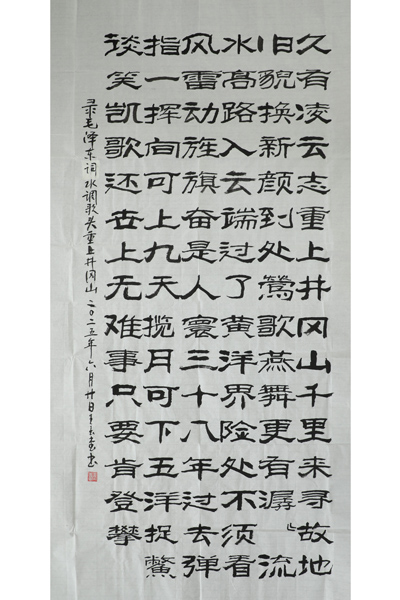 久有凌云志重上井冈山千里来寻故地
旧貌换新颜到处莺歌燕舞更有潺〻流
水高路入云端过了黄洋界险处不须看
风雷动旌旗奋是人寰三十八年过去弹
指一挥间可上九天揽月可下五洋捉鳖
谈笑凯歌还世上无难事只要肯登攀
录毛泽东词水调歌头重上井冈山二〇二五年六月廿日